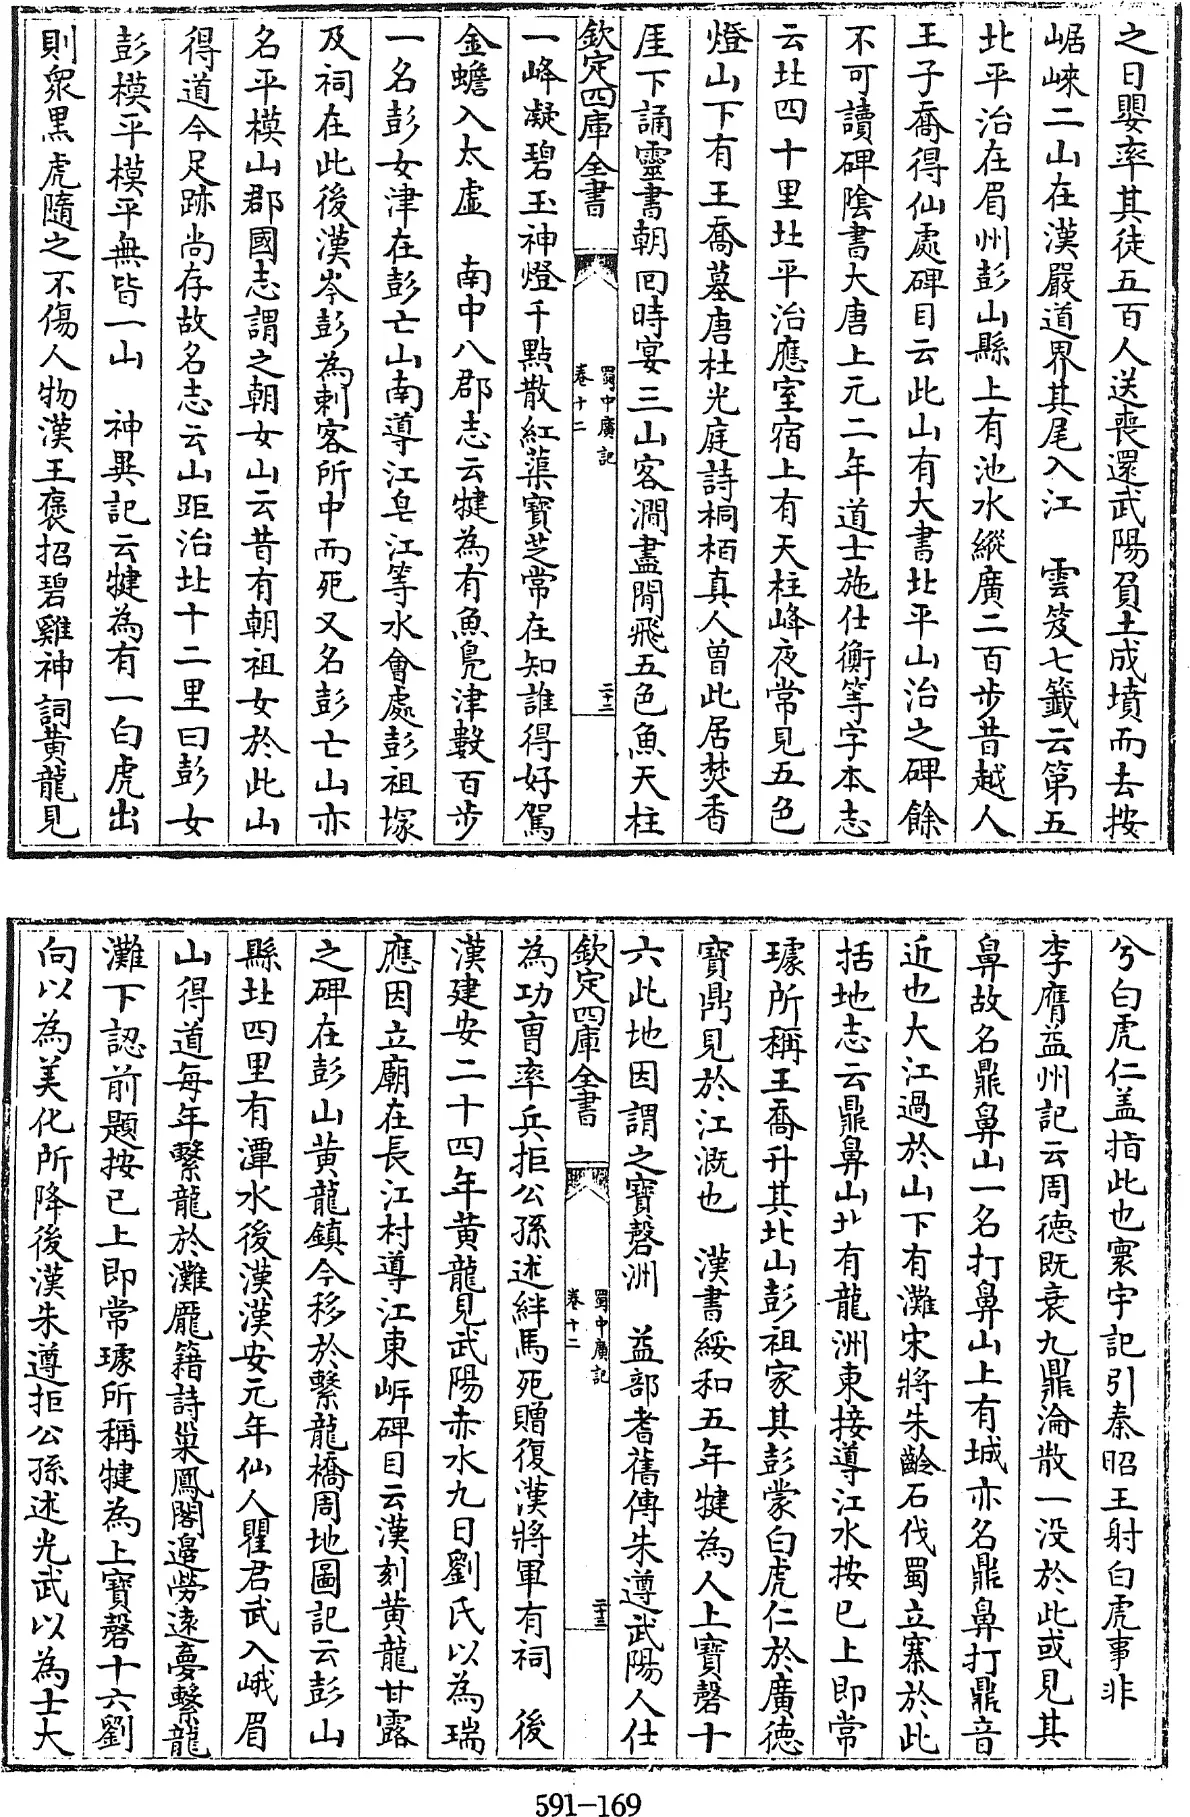 之日嬰率其徒五百人送喪還武陽負土成墳而去按
崌崍二山在漢嚴道界其尾入江　雲笈七籤云第五
北平治在眉州彭山縣上有池水縱廣二百步昔越人
王子喬得仙處碑目云此山有大書北平山治之碑餘
不可讀碑陰書大唐上元二年道士施仕衡等字本志
云北四十里北平治應室宿上有天柱峰夜常見五色
燈山下有王喬墓唐杜光庭詩桐栢真人曽此居焚香
厓下誦靈書朝回時宴三山客澗盡閒飛五色魚天柱
欽定四庫全書
蜀中廣記
卷十二
二十二
一峰凝碧玉神燈千點散紅蕖寳芝常在知誰得好駕
金蟾入太虚　南中八郡志云犍為有魚鳧津數百步
一名彭女津在彭亡山南導江皂江等水會處彭祖塚
及祠在此後漢岑彭為刺客所中而死又名彭亡山亦
名平模山郡國志謂之朝女山云昔有朝祖女於此山
得道今足跡尚存故名志云山距治北十二里曰彭女
彭模平模平無皆一山　神異記云犍為有一白虎出
則衆黒虎隨之不傷人物漢王褒招碧雞神詞黄龍見
兮白虎仁盖指此也寰宇記引秦昭王射白虎事非
李膺益州記云周德既衰九鼎淪散一没於此或見其
鼻故名鼎鼻山一名打鼻山上有城亦名鼎鼻打鼎音
近也大江過於山下有灘宋將朱齡石伐蜀立寨於此
括地志云鼎鼻山北有龍洲東接導江水按已上即常
璩所稱王喬升其北山彭祖家其彭蒙白虎仁於廣德
寳鼎見於江溉也　漢書綏和五年犍為人上寳磬十
六此地因謂之寳磬洲　益部耆舊傳朱遵武陽人仕
欽定四庫全書
蜀中廣記
卷十二
二十三
為功曹率兵拒公孫述絆馬死贈復漢將軍有祠　後
漢建安二十四年黄龍見武陽赤水九日劉氏以為瑞
應因立廟在長江村導江東岸碑目云漢刻黄龍甘露
之碑在彭山黄龍鎮今移於繫龍橋周地圖記云彭山
縣北四里有潭水後漢漢安元年仙人瞿君武入峨眉
山得道每年繫龍於灘龎籍詩巢鳳閣邉勞逺夢繫龍
灘下認前題按已上即常璩所稱犍為上寳磬十六劉
向以為美化所降後漢朱遵拒公孫述光武以為士大
591-169